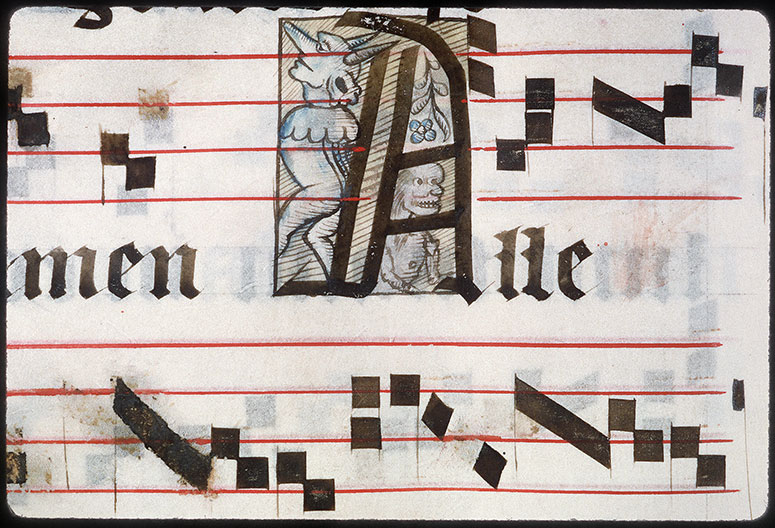 men Alle